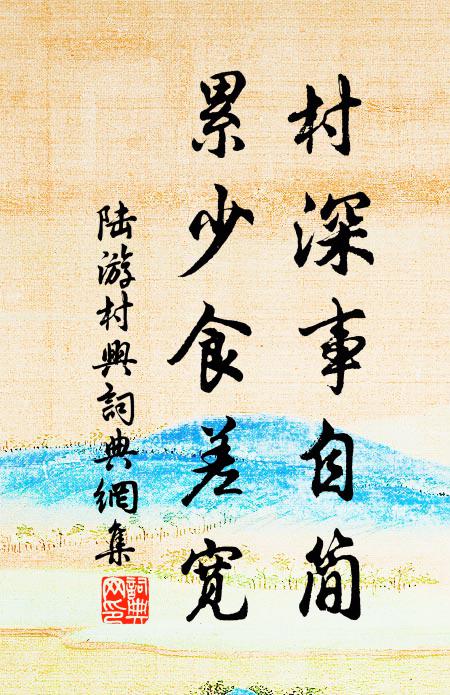 村深事自简
累少食差宽
陆游村興詞典網集